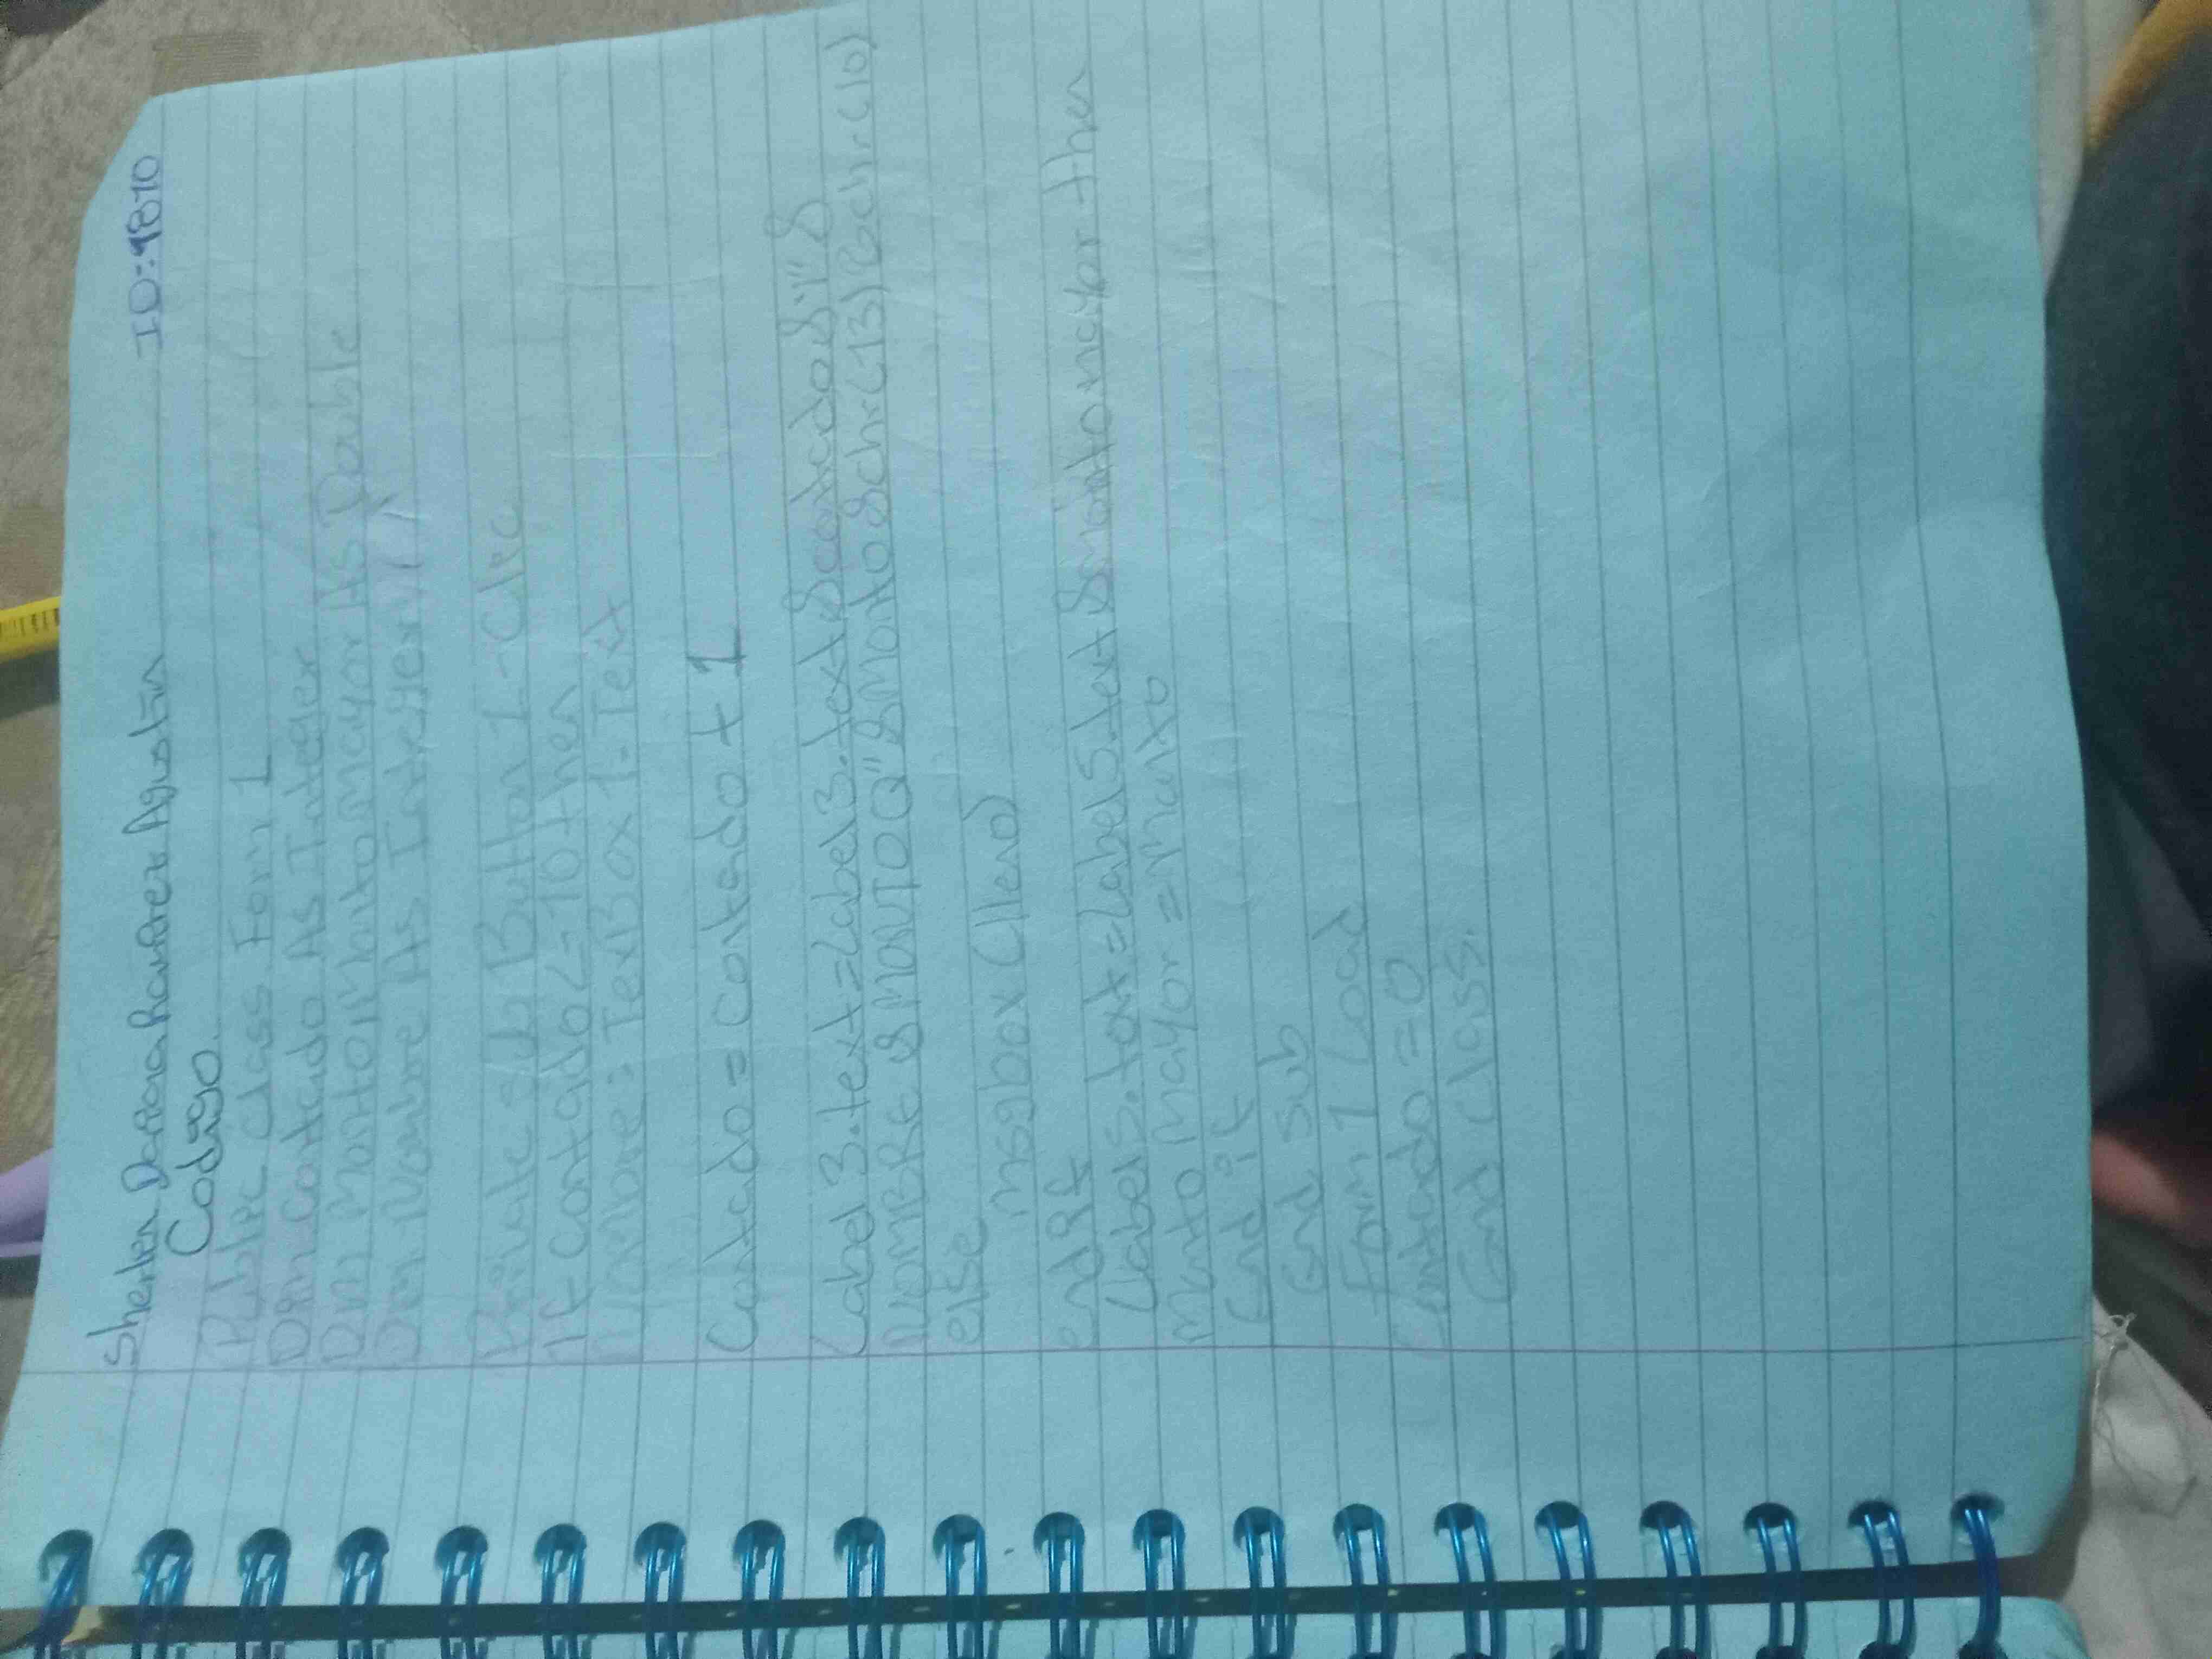 Sherlyn Dariana Ramirez Agustin ID:9870
Codigo
Public Class Form 1
Dim contado As Integer
Dim Monto, Monto mayor As Double
Dim Nombre As
Private sub Button 1 - Clic
If contado <= 10 then
Nombre = TexBox 1. Text
Contado = contado + 1
Label 3. text = Label 3. text & contado & "," &
NOMBRE & MONTO Q" & Monto & chr(13) & chr(10)
else
msgbox (lleno)
end if
Label 5. text = Label 5. text & monto mayor then
Monto mayor = Monto
End if
End sub
Form 1 Load
Contado = 0
End class.